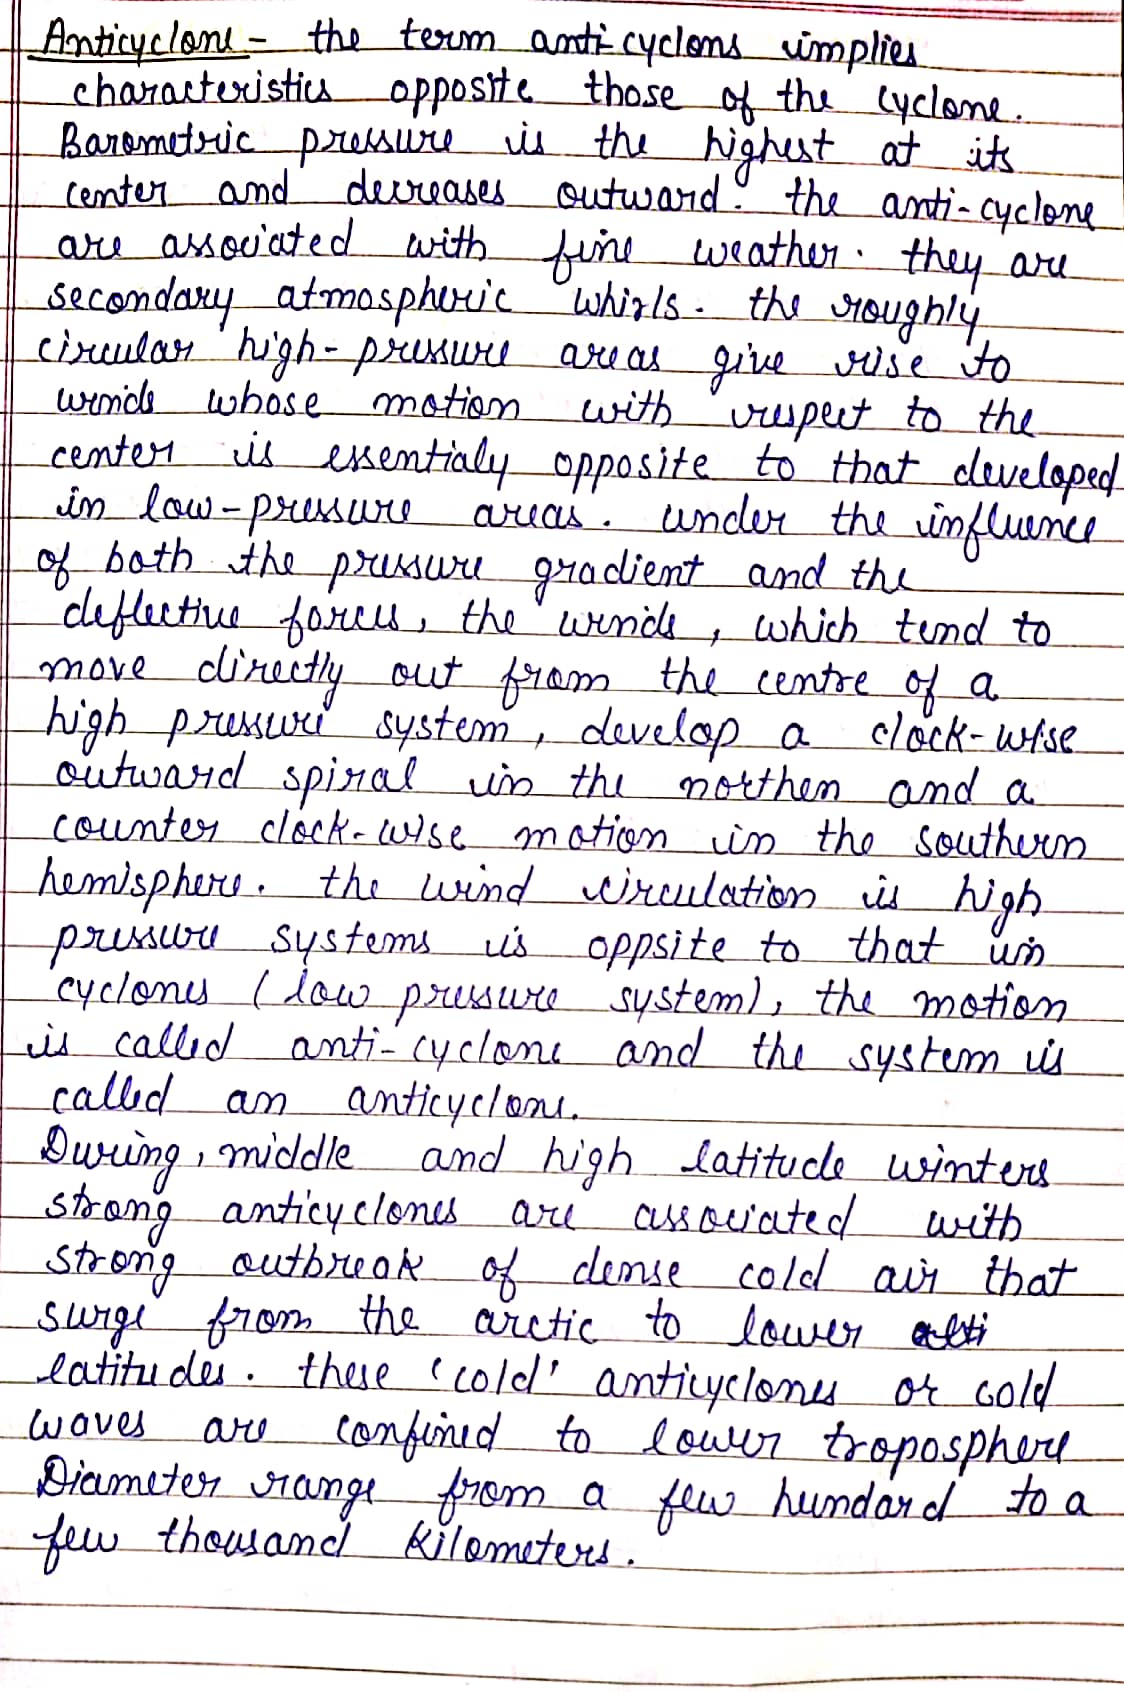 Anticyclone - the term anti-cyclons implies
characteristics opposite those of the cyclone.
Barometric pressure is the highest at its
center and decreases outward. the anti-cyclone
are associated with fine weather. they are
secondary atmospheric whirls. the roughly
circular high-pressure areas give rise to
winds whose motion with respect to the
center is essentialy opposite to that developed
in low-pressure areas. under the influence
of both the pressure gradient and the
deflective forces, the winds, which tend to
move directly out from the centre of a
high pressure system, develop a clock-wise
outward spiral in the northen and a
counter clock-wise motion in the southern
hemisphere. the wind circulation is high
pressure systems is oppsite to that in
cyclones (low pressure system), the motion
is called anti-cyclone and the system is
called an anticyclone.
During, middle and high latitude winters
strong anticyclones are associated with
strong outbreak of dense cold air that
surge from the arctic to lower
latitudes. these 'cold' anticyclones or cold
waves are confined to lower troposphere
Diameter range from a few hundard to a
few thousand kilometers.